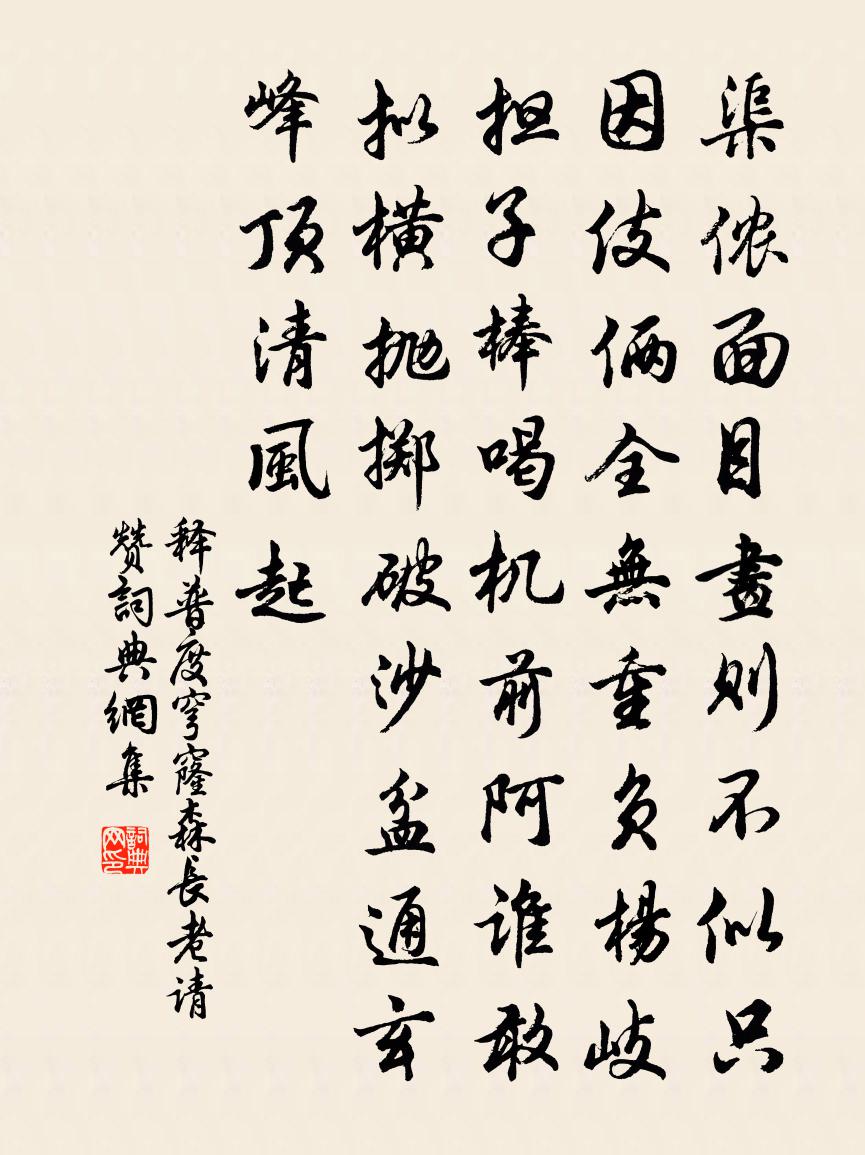 渠侬面目畫则不似只
因伎俩全無重负楊岐
担子棒喝机前阿谁敢
拟橫抛掷破沙盆通玄
峰顶清風起
释普度穹窿森長老请
赞詞典網集
詞典网印